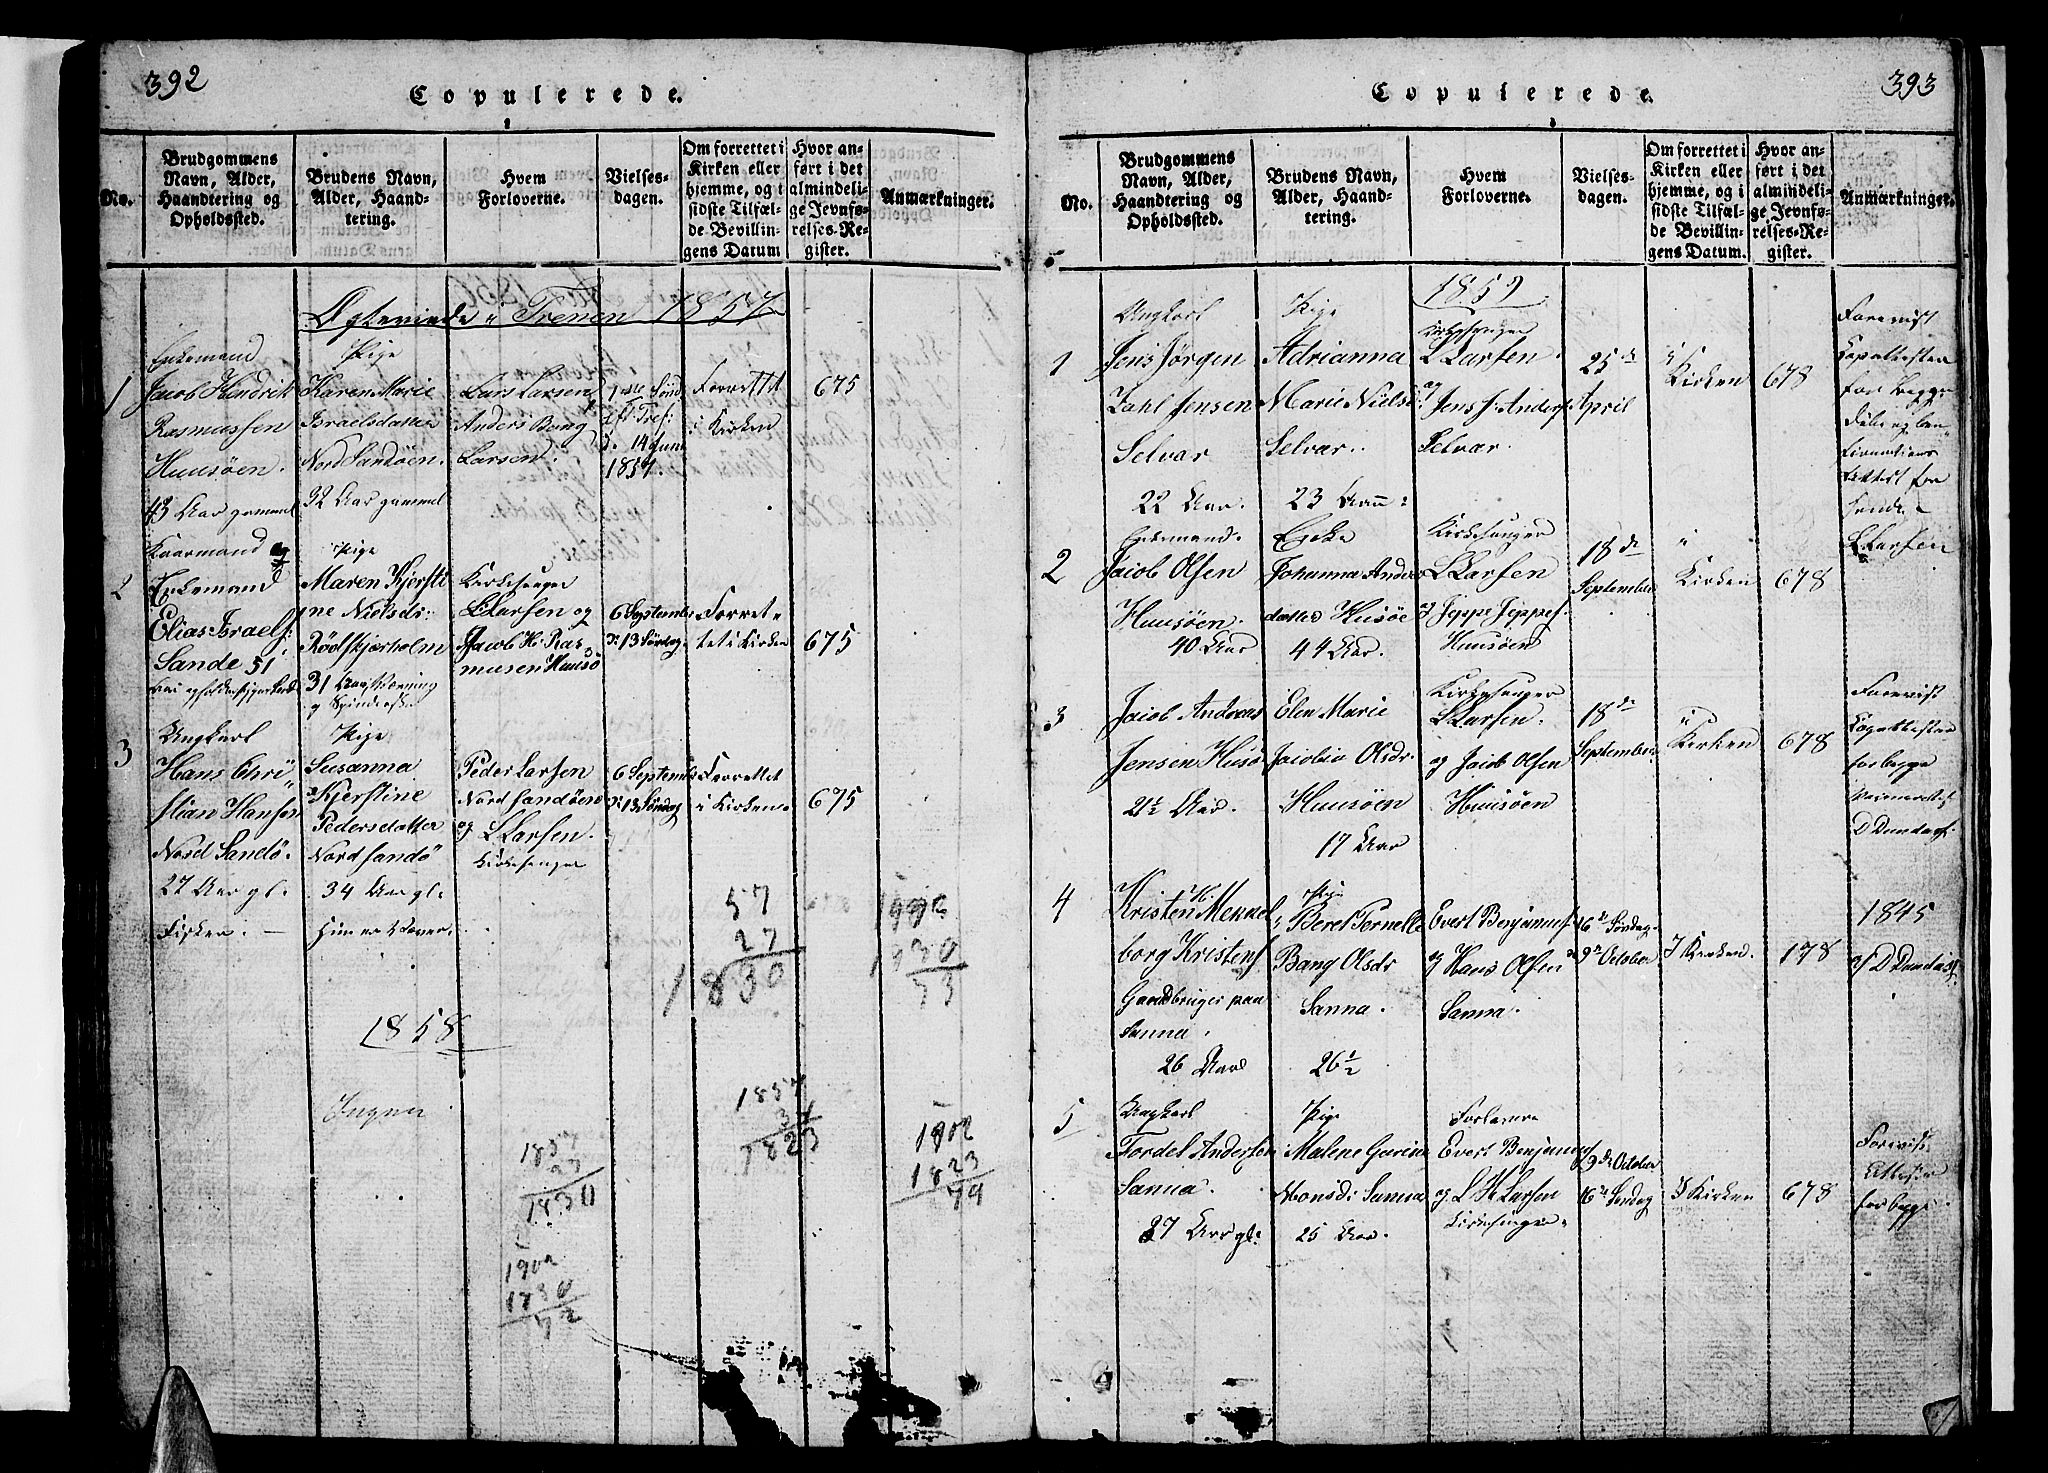 392
Copulerede.
No.
Brudgommens
Navn, Alder,
Haandtering og
Opholdssted.
Brudens Navn,
Alder, Haand-
tering.
Hvem
Forloverne.
Vielses-
dagen.
Om forrettet i
Kirken eller
hjemme, og i
sidste Tilfæl-
de Bevillin-
gens Datum
Hvor an-
ført i det
almindeli-
ge Jevnfø-
relses-Re-
gister.
Anmærkninger.
Ægteviede i Trenen 1857
1
Enkemand
Jacob Hendrik
Rasmussen
Huusøen.
43 Aar gammel
Pige
Karen Marie
Israelsdatter
Nord Sandøen.
32 Aar gammel
Lars Larsen
Anders Bang
Larsen.
1ste Sønd
eft Tref:
d. 14 Juni
1857.
Forrettet
i Kirken
675
2
Kaarmand og
Enkemand
Elias Israels:
Sande 51
Pige
Maren Kjersti
ne Nielsdr:
Rødskjærholm
31 Aar
og Spinderske
Kirkesanger
L Larsen og
Jacob H. Ras
musen Huusø
6 September
D: 13 Søndag
Forret
tet i Kirken
675
3
Ungkarl
Hans Chri
stian Hansen
Nord Sandø.
27 Aar gl.
Fisker. —
Pige
Susanna
Kjerstine
Pedersdatter
Nord sandø
34 Aar gl.
Peder Larsen
Nord sandøen
og L Larsen.
Kirkesanger
6 September
D: 13 Søndag
Forrettet
i Kirken.
675
57
27
1830
1902
1830
73
1858
Ingen
1857
34
1823
1902
1823
79
1857
27
1830
1902
1830
72
393
Copulerede.
No.
Brudgommens
Navn, Alder,
Haandtering og
Opholdssted.
Brudens Navn,
Alder, Haand-
tering.
Hvem
Forloverne.
Vielses-
dagen.
Om forrettet i
Kirken eller
hjemme, og i
sidste Tilfæl-
de Bevillin-
gens Datum.
Hvor an-
ført i det
almindeli-
ge Jevnfø-
relses-Re-
gister.
Anmærkninger.
1859
1
Ungkarl
Jens Jørgen
Zahl Jensen
Selvær
22 Aar.
Pige
Adrianna
Marie Niels:
Selvær.
23 Aar:
Kirkesanger
L Larsen.
og
Jens J: Anders:
Selvær.
25de
April
i
Kirken
678
Forevist
Copattester
for begge
L Larsen
2
Enkemand.
Jacob Olsen
Huusøen.
40 Aar
Enke
Johanna Anders
datter Husøe
44 Aar.
Kirkesanger
L Larsen
og Jeppe Jeppes.
Huusøen
18de
September
i
Kirken
678
3
Jacob Andreas
Jensen Husø
21½ Aar.
Elen Marie
Jacobia Olsdr.
Huusøen
17 Aar
Kirkesanger
L Larsen.
og Jacob Olsen
Huusøen
18de
September
i
Kirken
678
Forevist
Copattester
for begge
D Dundas.
4
Kristen H. Mekkel
borg Kristens
Gaardbruger paa
Sanna.
26 Aar
Pige
Beret Pernelle
Bang Olsdr
Sanna.
26½
Evert Benjamins
og Hans Olsen
Sanna.
16de Søndag
9de October
I Kirken.
178
1845
af D Dundas
5
Ungkarl
Tordel Andersen
Sanna.
27 Aar gl:
Pige
Malene
Monsdr: Sanna
25 Aar.
Forlovere
Evert Benjamins
og L H Larsen
Kirkesanger
9de October
16de Søndag
I Kirken
678
Forevist
Attester
for begge.